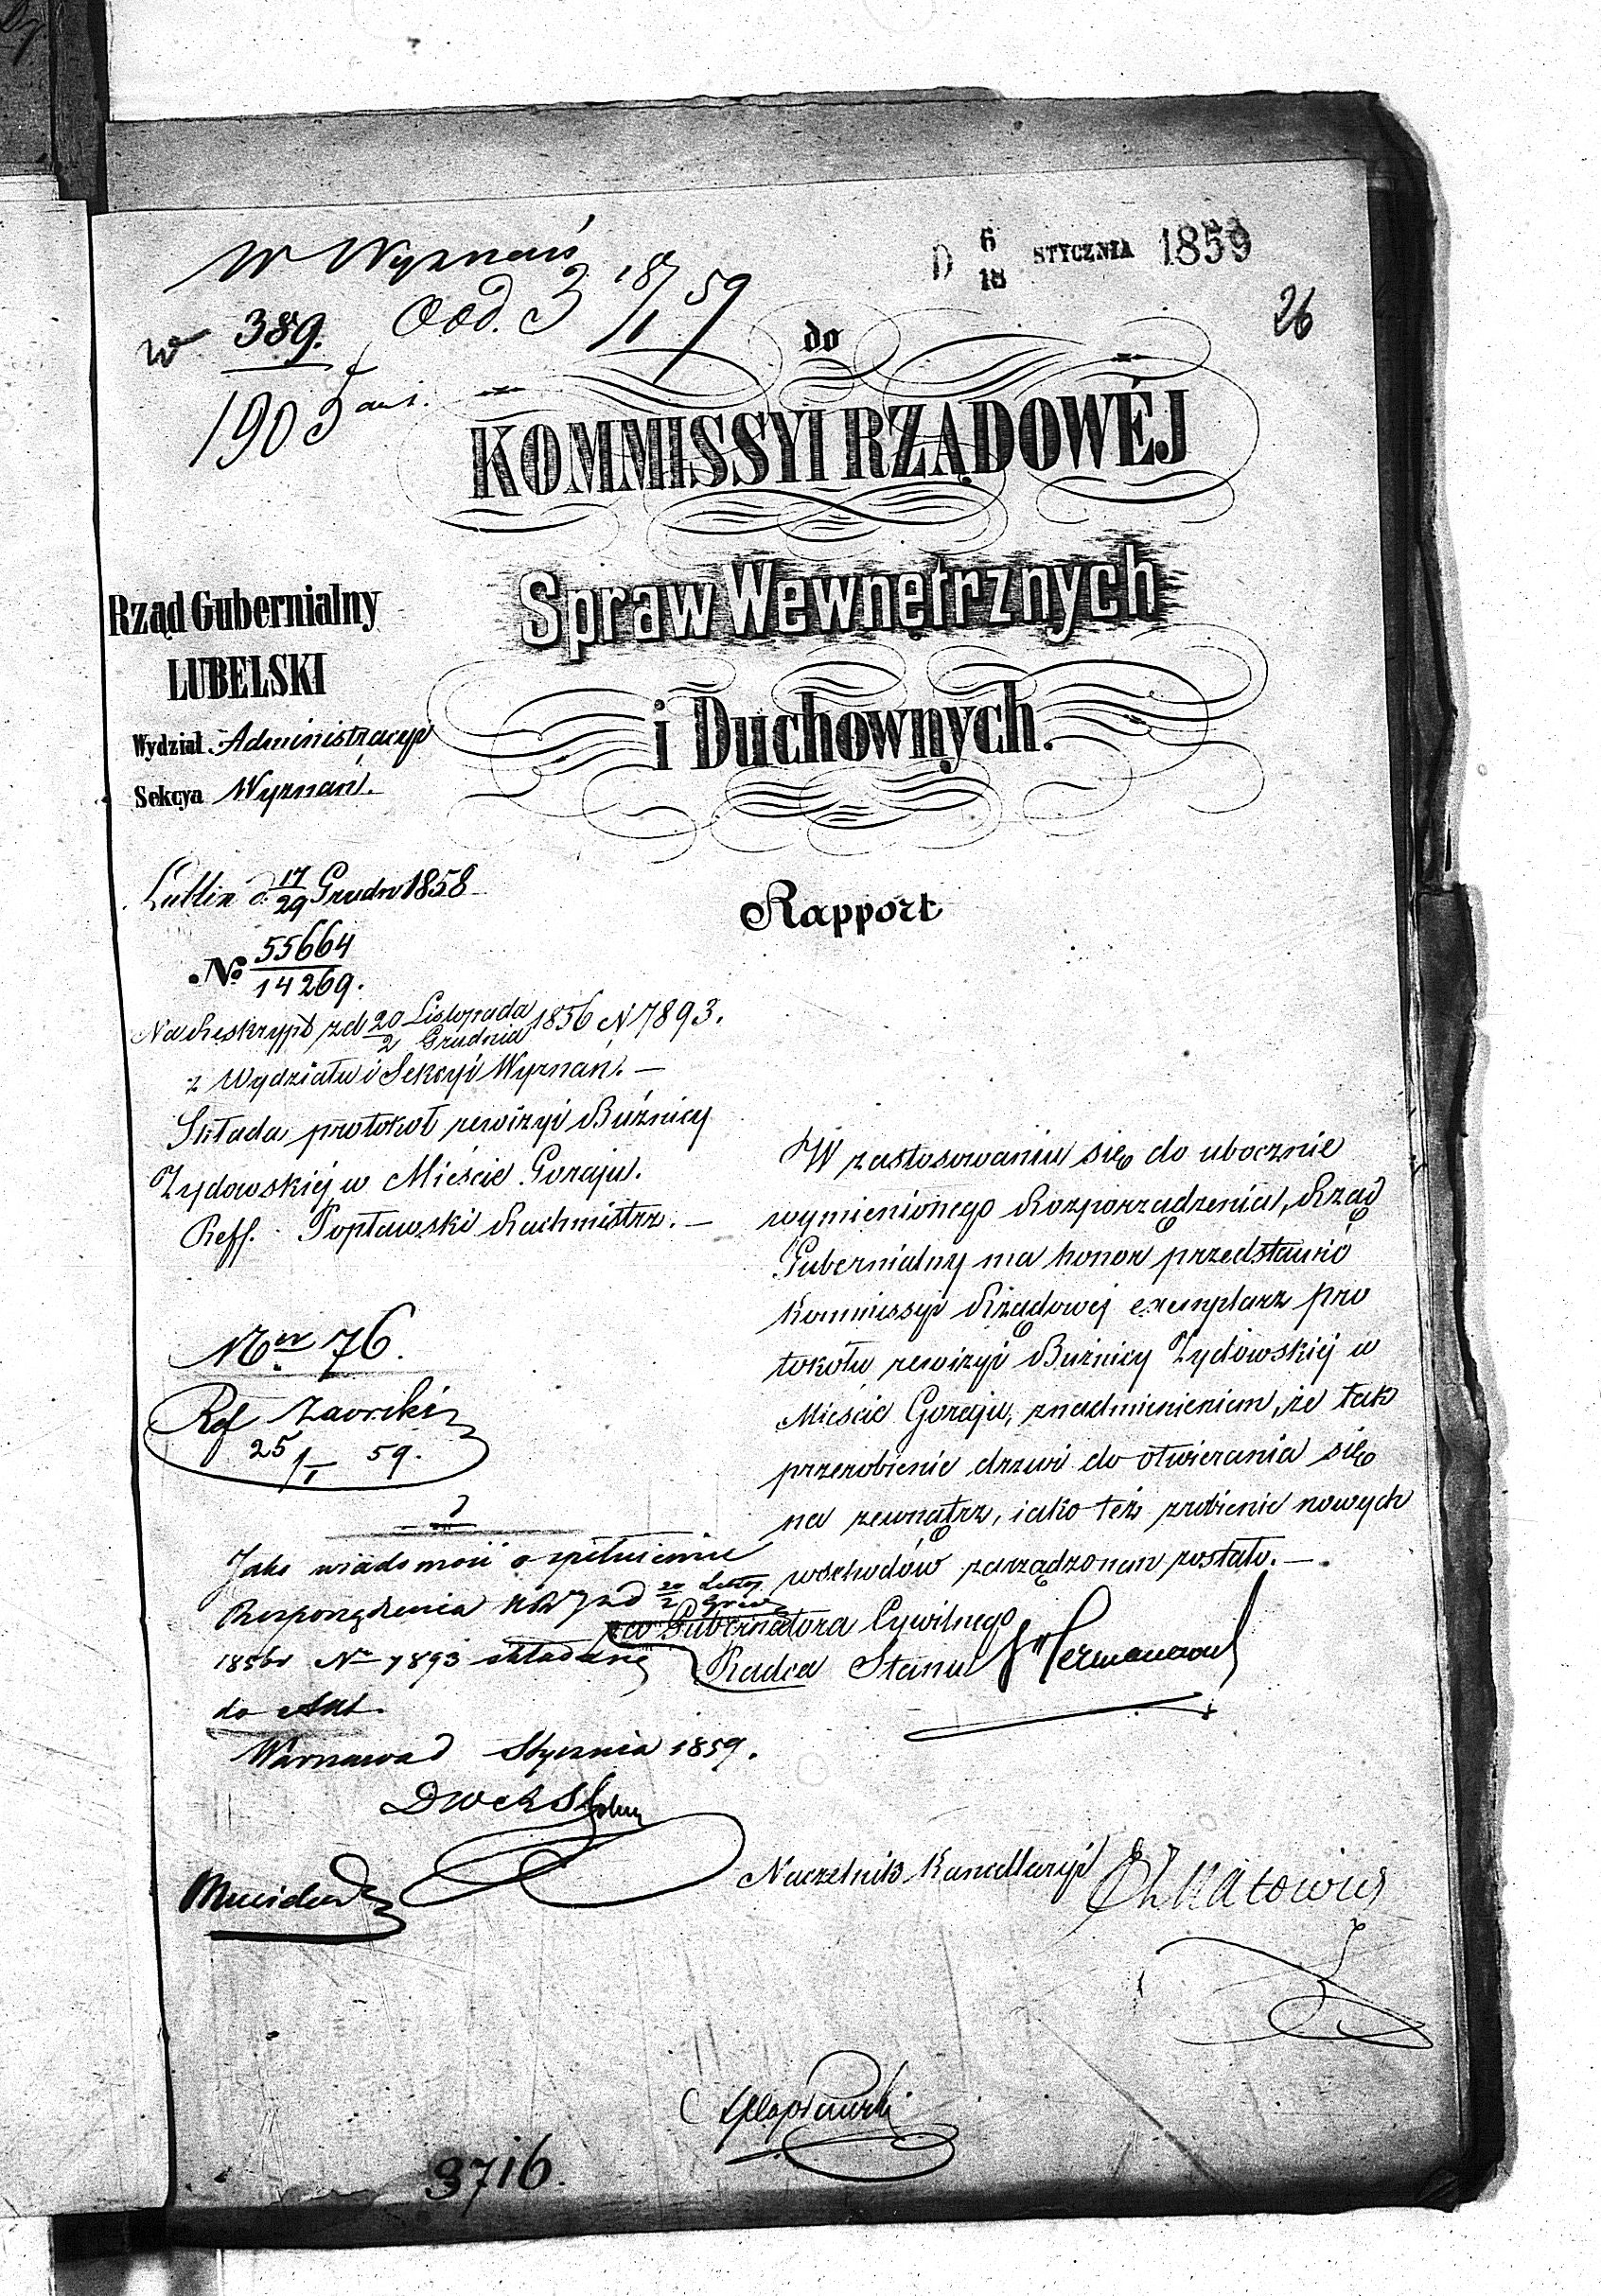 W Wyznań
Odd. 3 18/1 59
D 6/18 STYCZNIA 1859
26
w 389.
1903
do
KOMMISSYI RZĄDOWÉJ
Spraw Wewnętrznych
i Duchownych.
Rząd Gubernialny
LUBELSKI
Wydział Administracyi
Sekcya Wyznań.
Lublin d. 17/29 Grudn 1858
№ 55664/14269.
Rapport
Na Reskrypt zd 20 Listopada/2 Grudnia 1856 N 7893.
z Wydziału i Sekcyi Wyznań. —
Składa protokoł rewizyi Bużnicy
Żydowskiéj w Mieście Goraju.
Reff. Popławski Rachmistrz. —
W zastosowaniu się do ubocznie
wymienionego Rozporządzenia, Rząd
Gubernialny ma honor przedstawić
Kommissyi Rządowej exemplarz pro
tokołu rewizyi Bużnicy Żydowskiéj w
Mieście Goraju, z nadmienieniem, że tak
przerobienie drzwi do otwierania się
na zewnątrz, iako też zrobienie nowych
wschodów zarządzonem zostało. —
76.
Ref
25/I 59.
Jako wiadomość o spełnieniu
Rozporządzenia
1856 N 7893 składa się
do Akt.
Warszawa d Stycznia 1859.
Gubernatora Cywilnego
Radca Stanu
Naczelnik Kancellaryi
3716.